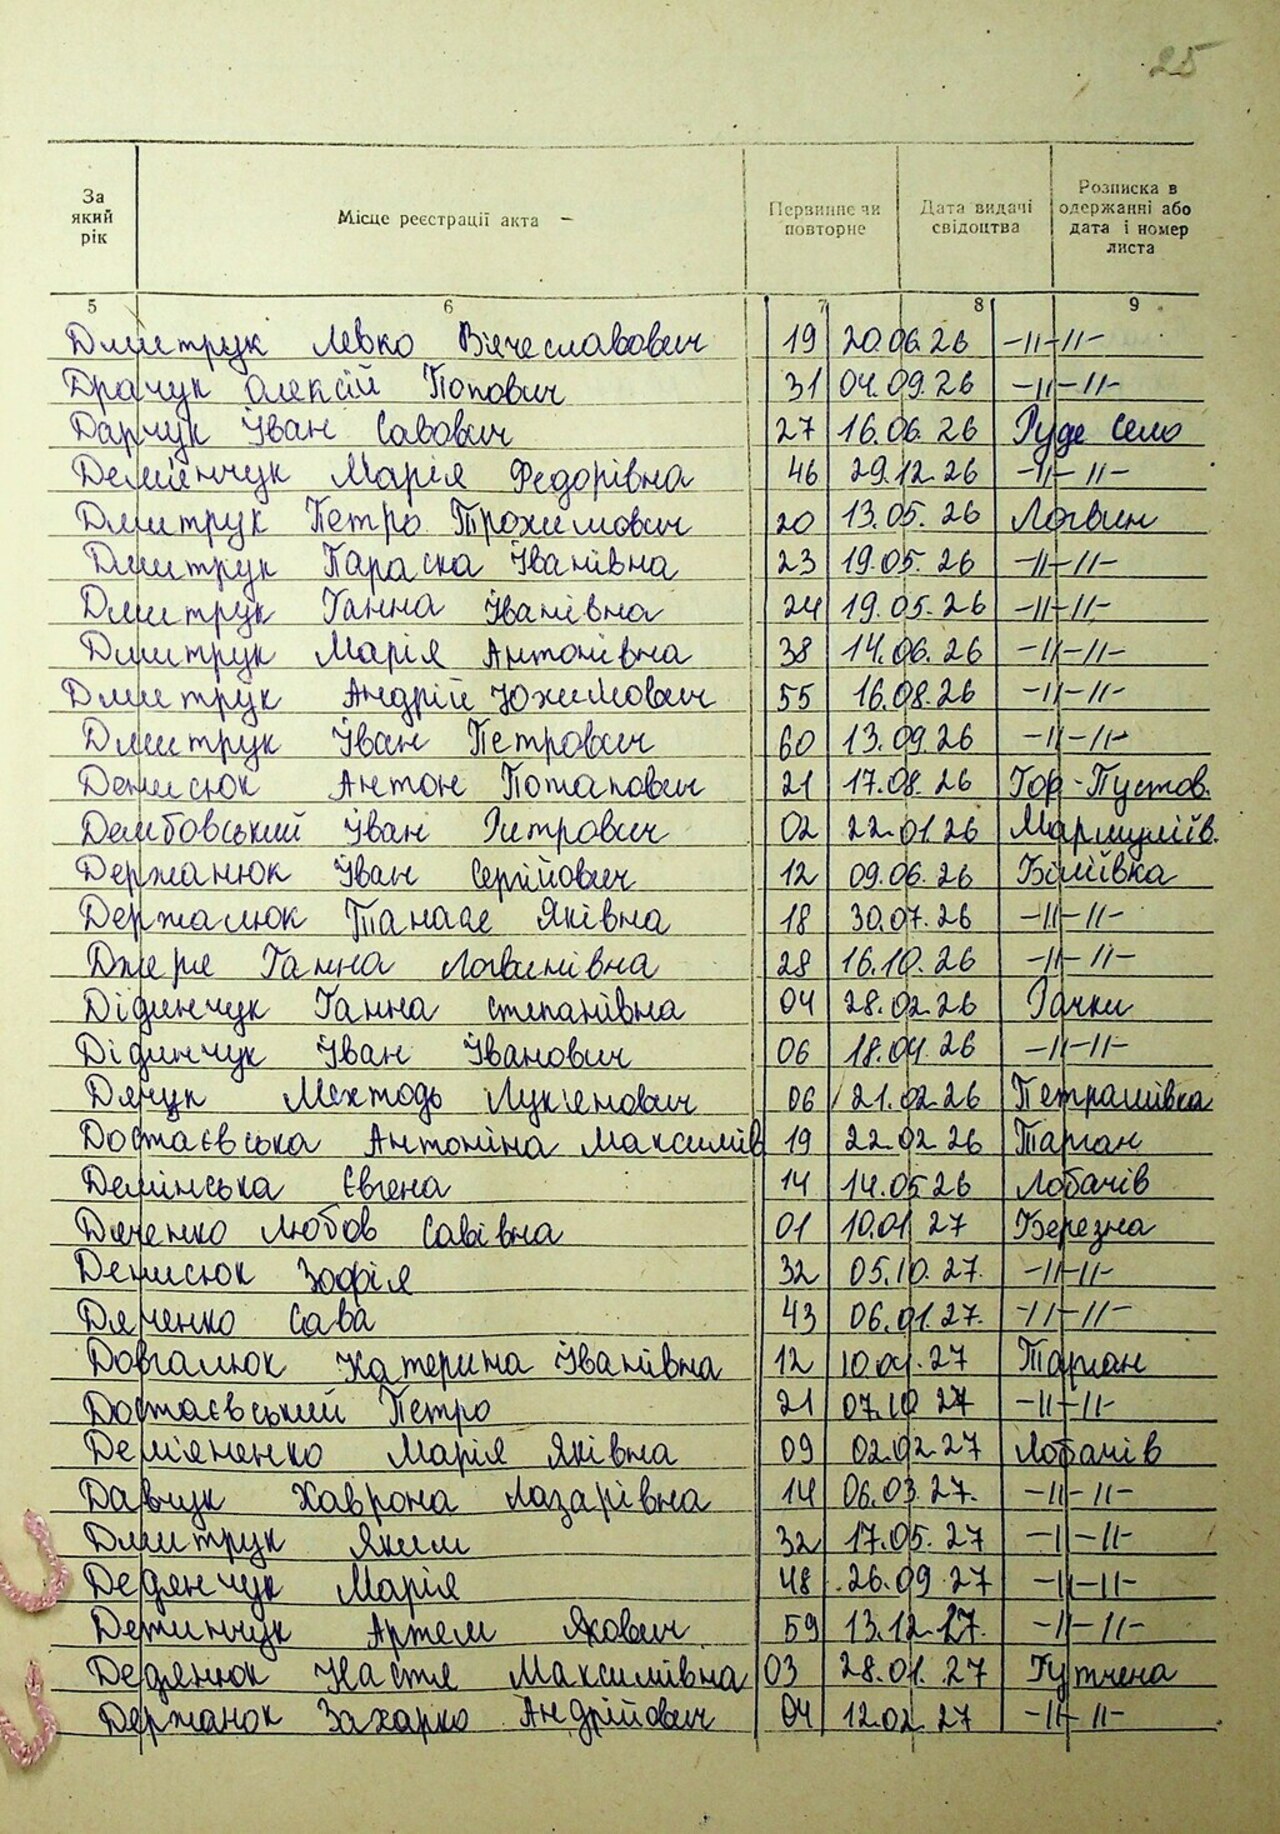 25
За який рік Місце реєстрації акта Первинне чи повторне Дата видачі свідоцтва Розписка в одержанні або дата і номер листа
5 6 7 8 9
Дмитрук Левко Вячеславович 19 20.06.26 -//-//-
Драчук Олексій Попович 31 04.09.26 -//-//-
Дарчук Іван Савович 27 16.06.26 Руде Село
Дем'янчук Марія Федорівна 46 29.12.26 -//-//-
Дмитрук Петро Трохимович 20 13.05.26 Логвин
Дмитрук Параска Іванівна 23 19.05.26 -//-//-
Дмитрук Ганна Іванівна 24 19.05.26 -//-//-
Дмитрук Марія Антонівна 38 14.06.26 -//-//-
Дмитрук Андрій Юхимович 55 16.08.26 -//-//-
Дмитрук Іван Петрович 60 13.09.26 -//-//-
Денисюк Антон Потапович 21 17.08.26 Гор-Пустов.
Дембовський Іван 02 22.01.26
Держанюк Іван Сергійович 12 09.06.26 Біліївка
Держалюк Танасе Яківна 18 30.07.26 -//-//-
Ганна Логвинівна 28 16.10.26 -//-//-
Дідинчук Ганна Степанівна 04 28.02.26 Гачки
Дідинчук Іван Іванович 06 18.04.26 -//-//-
Дячук 06 21.02.26
Достаєвська Антоніна Максимів 19 22.02.26 Тарган
Демінська Євгена 14 14.05.26 Лобачів
Дяченко Любов Савівна 01 10.01.27 Березна
Денисюк Зофія 32 05.10.27. -//-//-
Дяченко Сава 43 06.01.27. -//-//-
Довгалюк Катерина Іванівна 12 27 Тарган
Достаєвський Петро 21 07.10.27 -//-//-
Дем'яненко Марія Яківна 09 02.02.27 Лобачів
Давчук Хаврона Лазарівна 14 06.03.27. -//-//-
Дмитрук Яким 32 17.05.27 -//-//-
Дедянчук Марія 48 26.09.27 -//-//-
Деминчук Артем Якович 59 13.12.27. -//-//-
Дедянюк Настя Максимівна 03 28.01.27
Держанок Захарко Андрійович 04 12.02.27 -//-//-